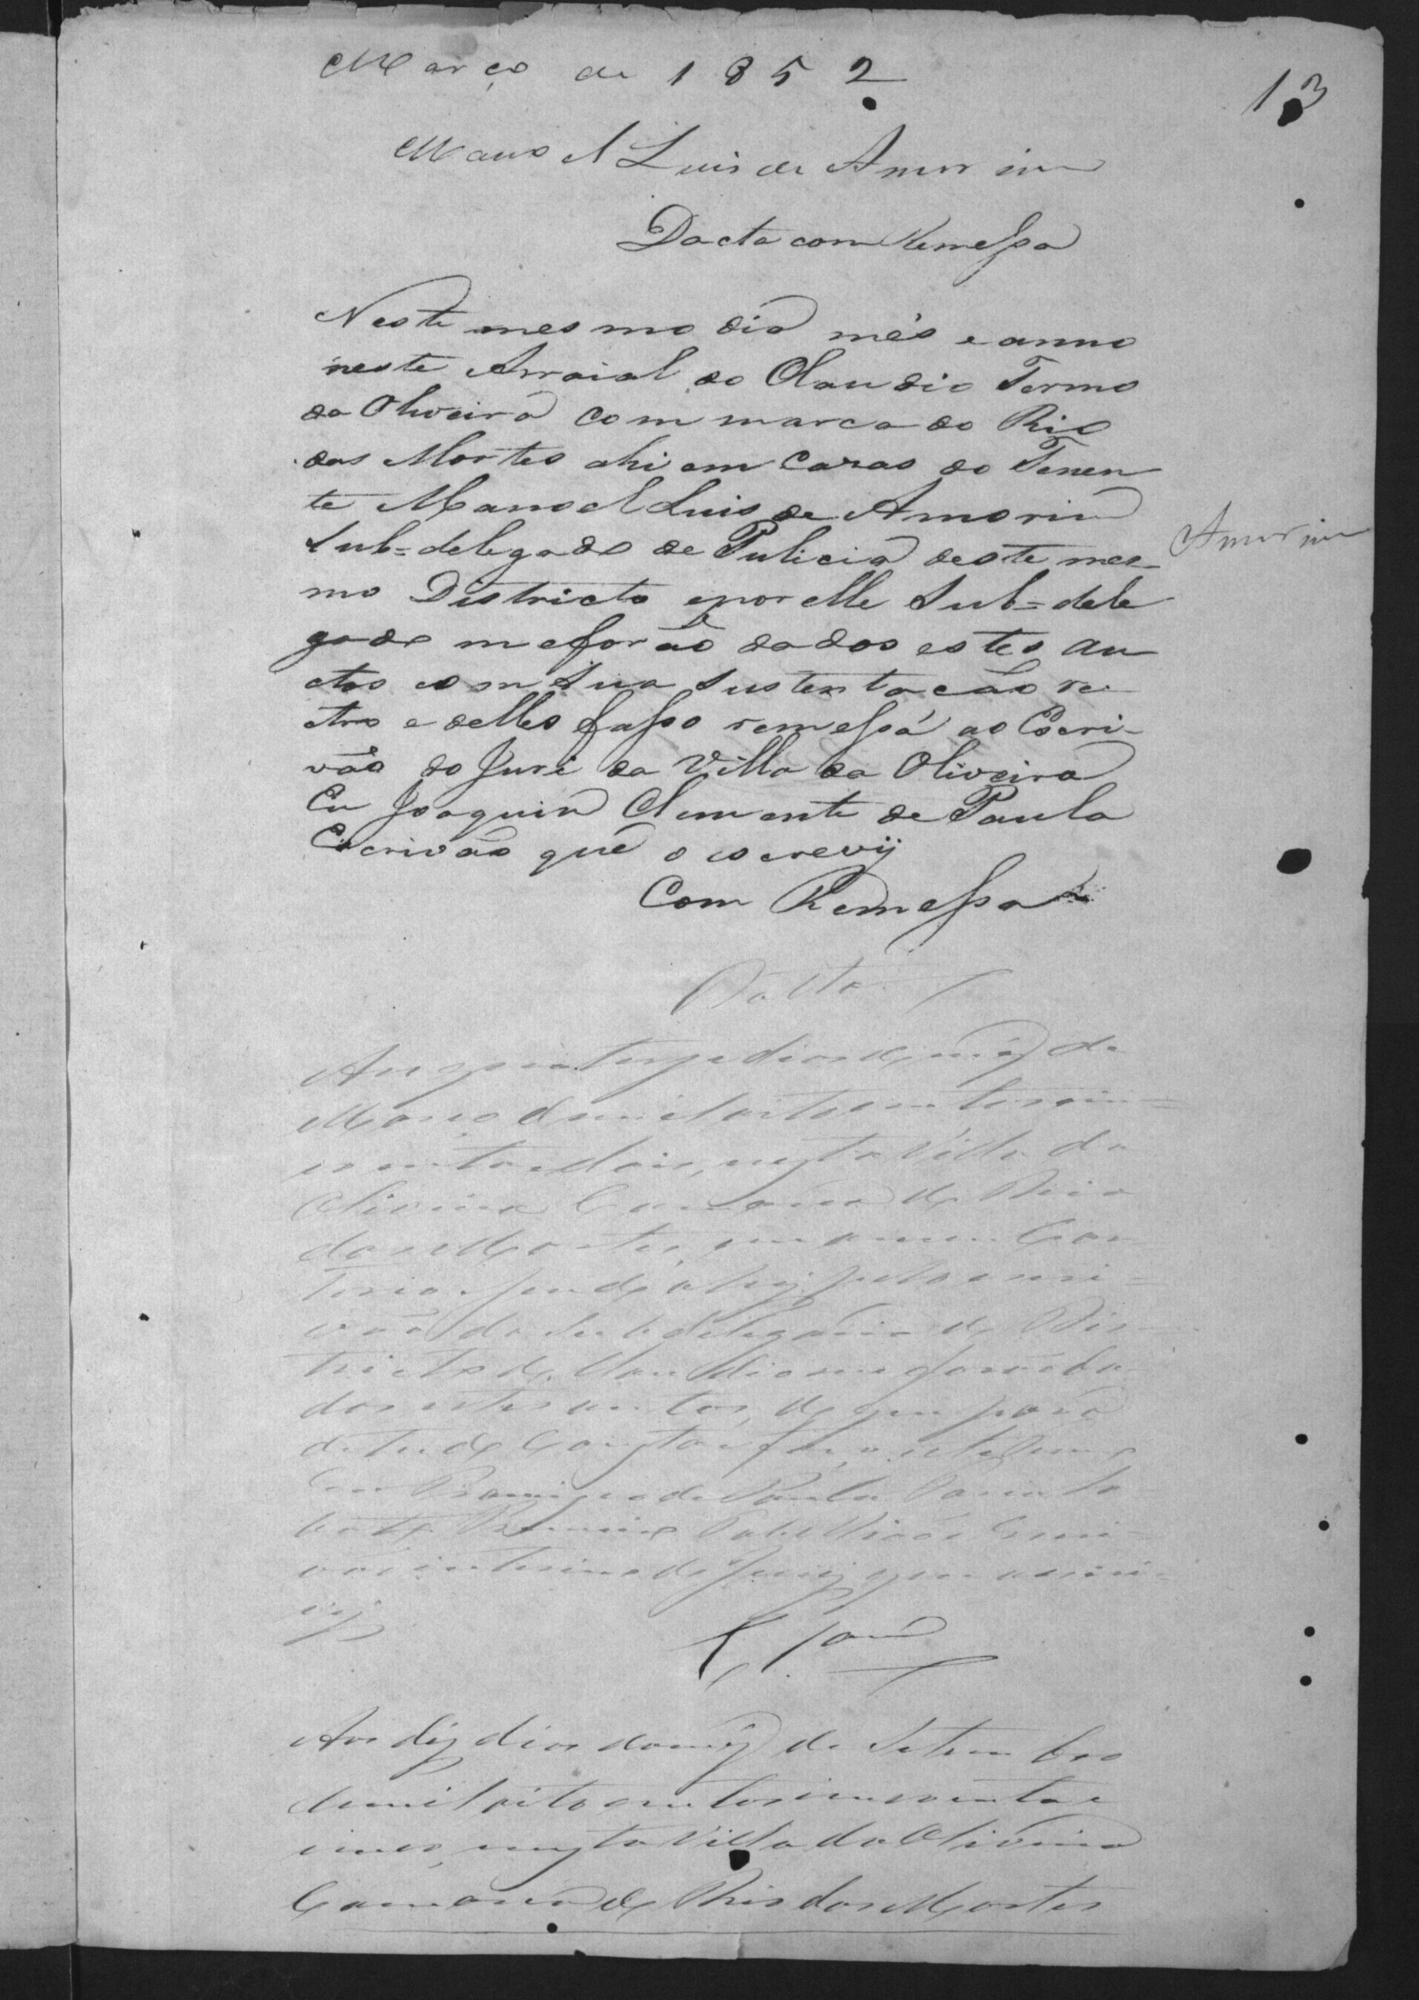 Março de 1852
13
Manoel Luis de Amorim
Dacta com Remessa
Neste mesmo dia mês e anno
neste Arraial do Claudio Termo
da Oliveira Commarca do Rio
das Mortes ahi em Cazas do Tenen
te Manoel Luis de Amorim
Sub=delegado de Pulicia deste mes-
Amorim
mo Districto e por elle Sub=dele
gado me forão dados estes au
ctos com Sua Sustentacão re
ctro e delles fasso remessa ao Escri-
vão do Juri da Villa da Oliveira
Eu Joaquim Clemente de Paula
Escrivão que o escrevij
Com Remessa
Datta
Aos dias do mêz de
Março de mil oitocentos cin=
coenta e dois, nesta Villa da
Oliveira Comarca do Rio
das Mortes, em o meu Car
torio, sendo ahi pelo escri=
vão da Subdelegacia do Dis
tricto do Claudio me forão da
dos estes autos, de que para
de tudo constar faço este termo
Eu de Paula
Tabellião Escri
vão interino do Jury que o escre=
vij
Aos dez dias do mez de Setembro
de mil oito centos cincoenta e
cinco, nesta Villa da Oliveira
Comarca do Rio das Mortes